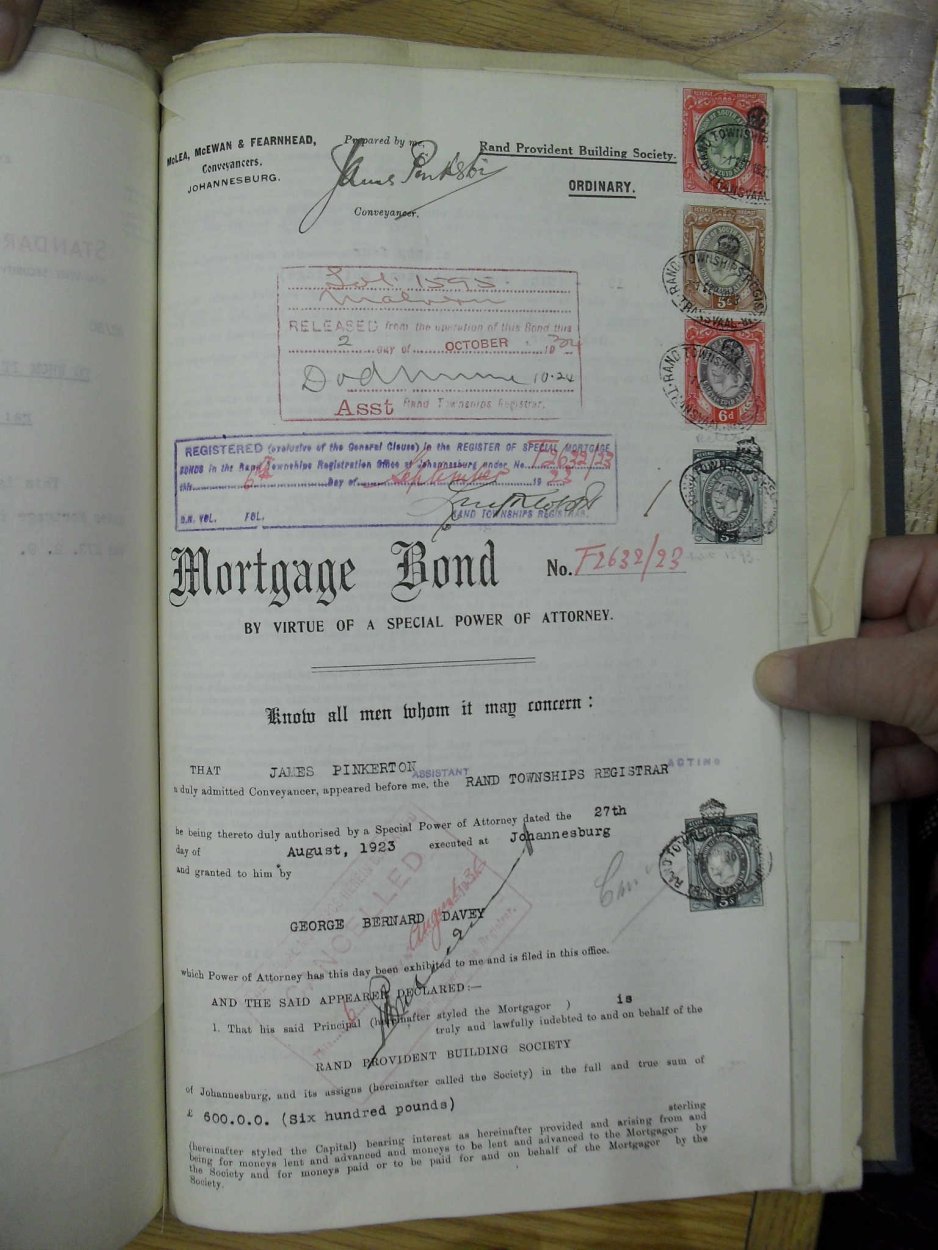 McLEA, McEWAN & FEARNHEAD,
Conveyancers,
JOHANNESBURG.
Prepared by me,
James Pinkerton
Conveyancer.
Rand Provident Building Society.
ORDINARY.
Lot: 1595.
Malvern
RELEASED from the operation of this Bond this
2 day of OCTOBER 19
10.24
Asst Rand Townships Registrar.
REGISTERED (exclusive of the General Clause) in the REGISTER OF SPECIAL MORTGAGE
BONDS in the Rand Townships Registration Office at Johannesburg under No. F2632/23
this 6th Day of September 19 23
B.M. VOL. FOL. RAND TOWNSHIPS REGISTRAR.
5s
6d
5s
Mortgage Bond No. F2632/23
BY VIRTUE OF A SPECIAL POWER OF ATTORNEY.
Know all men whom it may concern:
THAT JAMES PINKERTON
a duly admitted Conveyancer, appeared before me, the ASSISTANT RAND TOWNSHIPS REGISTRAR ACTING
he being thereto duly authorised by a Special Power of Attorney dated the 27th
day of August, 1923 executed at Johannesburg
and granted to him by
GEORGE BERNARD DAVEY
CANCELLED
6 August
5s
which Power of Attorney has this day been exhibited to me and is filed in this office.
AND THE SAID APPEARER DECLARED:—
1. That his said Principal (hereinafter styled the Mortgagor ) is
truly and lawfully indebted to and on behalf of the
RAND PROVIDENT BUILDING SOCIETY
of Johannesburg, and its assigns (hereinafter called the Society) in the full and true sum of
£ 600.0.0. (Six hundred pounds)
sterling
(hereinafter styled the Capital) bearing interest as hereinafter provided and arising from and
being for moneys lent and advanced and moneys to be lent and advanced to the Mortgagor by
the Society and for moneys paid or to be paid for and on behalf of the Mortgagor by the
Society.